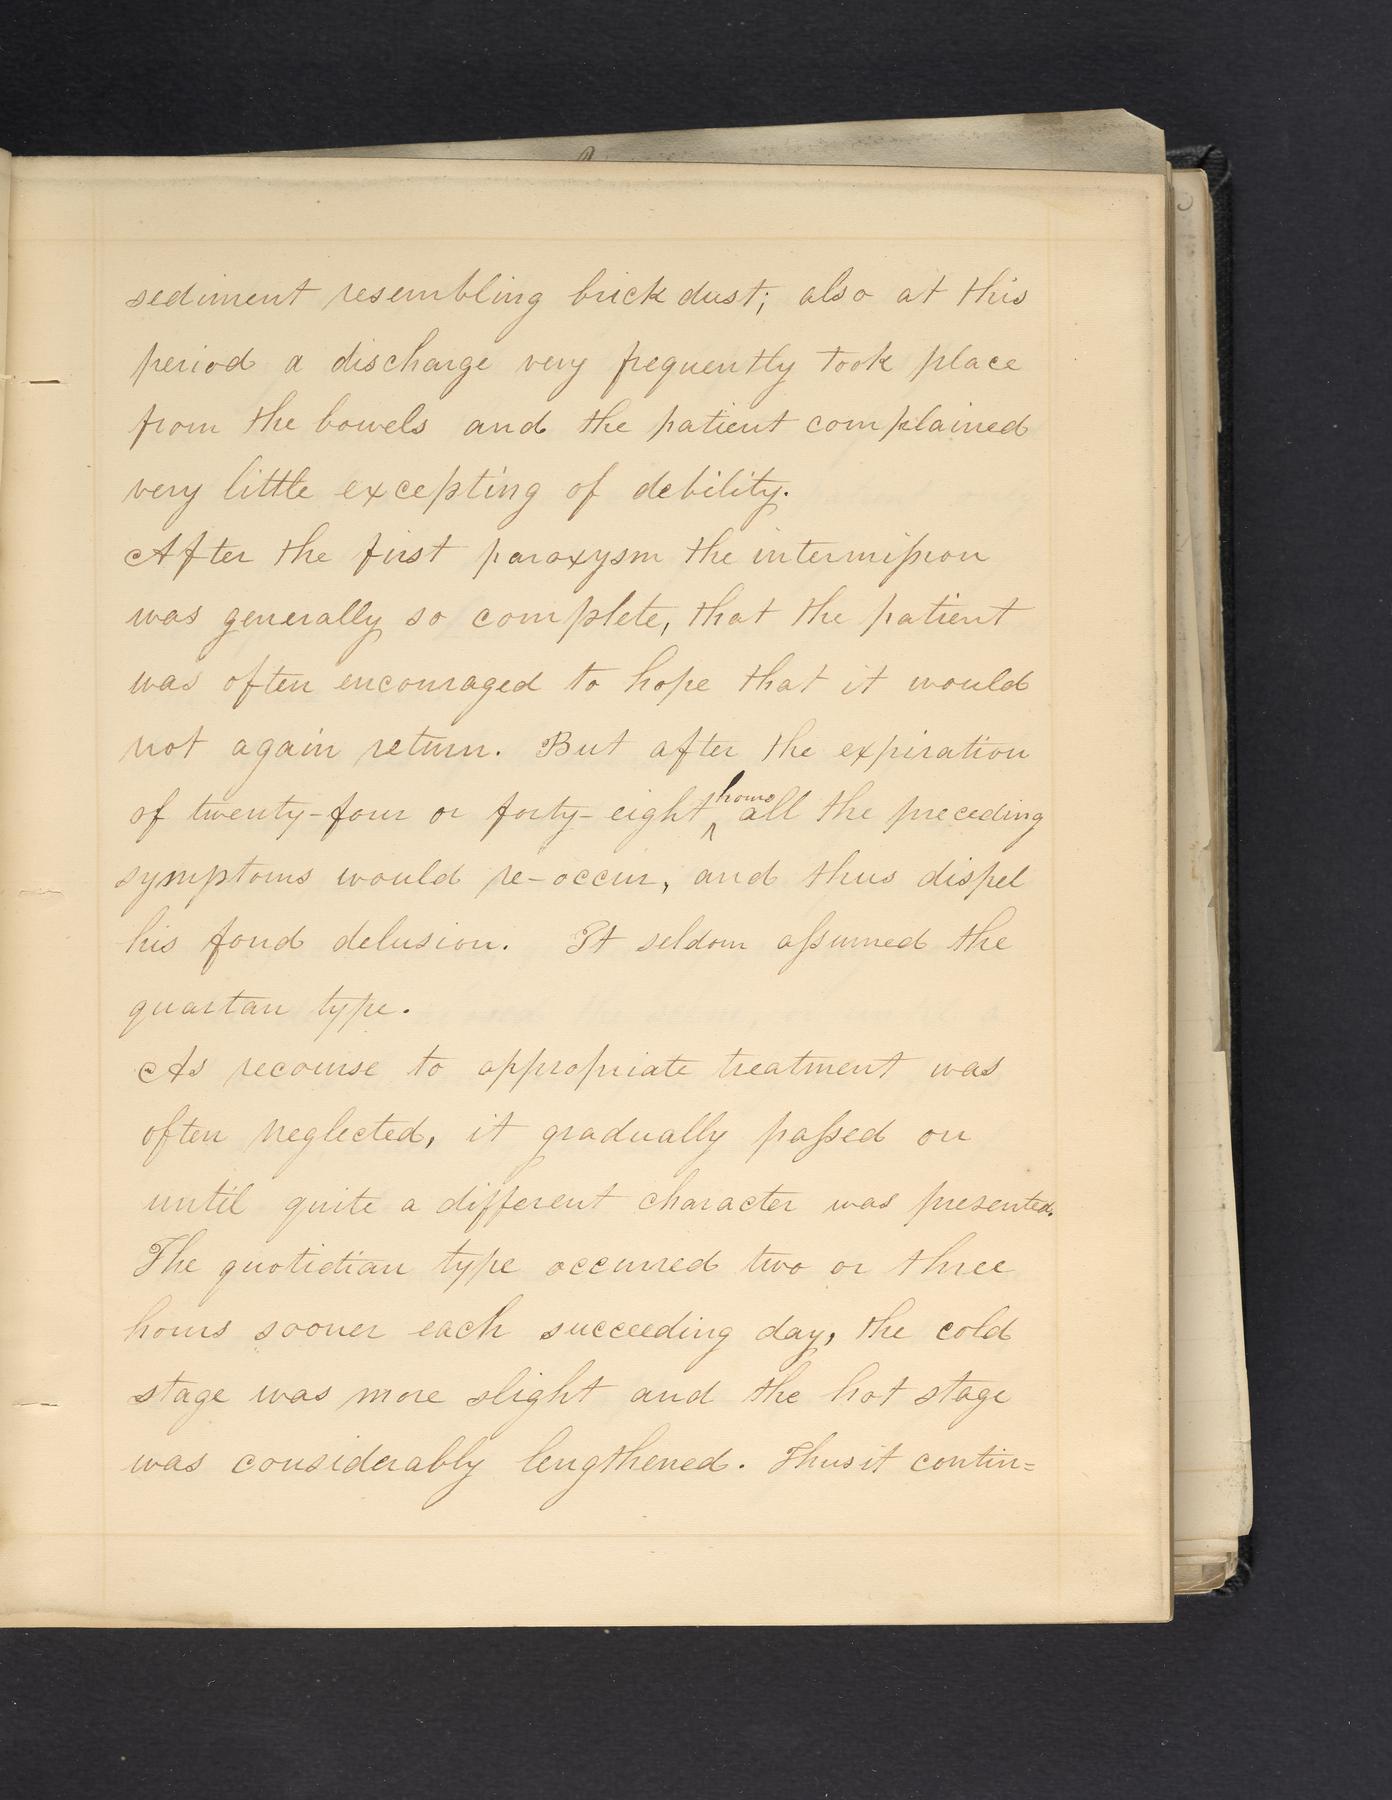 sediment resembling brick dust; also at this
period a discharge very frequently took place
from the bowels and the patient complained
very little excepting of debility.
After the first paroxysm the intermiſsion
was generally so complete, that the patient
was often encouraged to hope that it would
not again return. But after the expiration
of twenty-four or forty-eight ^hours all the preceding
symptoms would re-occur, and thus dispel
his fond delusion. It seldom aſsumed the
quartan type.
As recourse to appropriate treatment was
often neglected, it gradually paſsed on
until quite a different character was presented.
The quotidian type occurred two or three
hours sooner each succeeding day, the cold
stage was more slight and the hot stage
was considerably lengthened. Thus it contin=